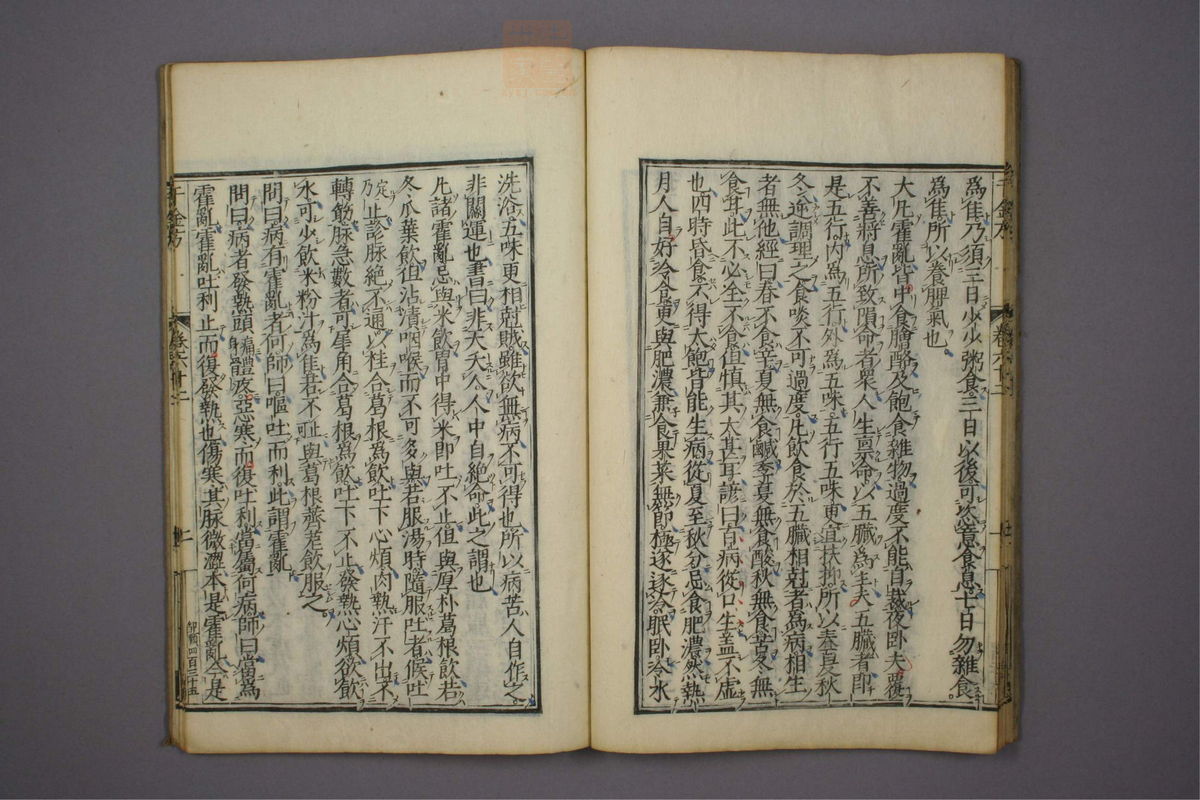 為佳乃須三日少少粥食三日以後可恣意食息七日勿雜食
為佳所以養脾氣也
大凡霍亂皆中食膾酪及飽食雜物過度不能自裁夜臥失覆
不善將息所致隕命者眾人生稟命以五臟為主夫五臟者即
是五行內為五行外為五味五行五味更宜扶抑所以春夏秋
冬逆調理之食啖不可過度凡飲食於五臟相剋者為病相生
者無他經曰春不食辛夏無食鹹季夏無食酸秋無食苦冬無
食甘此不必全不食但慎其太甚耳諺曰百病從口生蓋不虛
也四時昏食不得太飽皆能生病從夏至秋分忌食肥濃然熱
月人自好冷食更與肥濃兼食果菜無節極遂逐冷眠臥冷水
洗浴五味更相剋賊雖欲無病不可得也所以病苦人自作之
非關運也書曰非天夭人人中自絕命此之謂也
凡諸霍亂忌與米飲胃中得米即吐不止但與厚朴葛根飲若
冬瓜葉飲但沾漬咽喉而不可多與若服湯時隨服吐者候吐
定乃止診脉絕不通以桂合葛根為飲吐下心煩肉熱汗不出不
轉筋脉急數者可犀角合葛根為飲吐下不止發熱心煩欲飲
水可少飲米粉汁為佳若不止與葛根薺苨飲服之
問曰病有霍亂者何師曰嘔吐而利此謂霍亂
問曰病者發熱頭痛身體疼惡寒而復吐利當屬何病師曰當為
霍亂霍亂吐利止而復發熱也傷寒其脉微濇本是霍亂今是
千金方
卷六十二